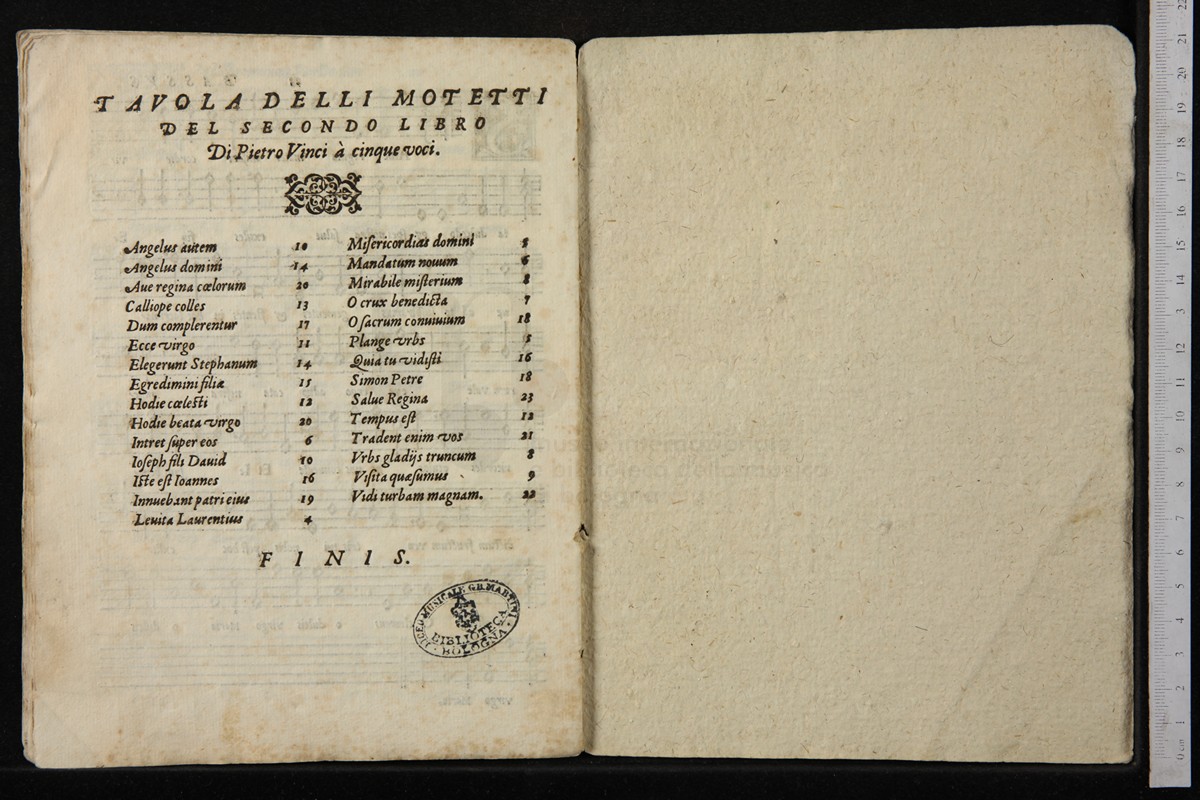 TAVOLA DELLI MOTETTI
DEL SECONDO LIBRO
Di Pietro Vinci à cinque voci.
Angelus autem 10
Angelus domini 14
Aue regina cœlorum 20
Calliope colles 13
Dum complerentur 17
Ecce virgo 11
Elegerunt Stephanum 14
Egredimini filiæ 15
Hodie cœlesti 12
Hodie beata virgo 20
Intret ſuper eos 6
Ioſeph fili Dauid 10
Iſte eſt Ioannes 16
Innuebant patri eius 19
Leuita Laurentius 4
Miſericordias domini 5
Mandatum nouum 6
Mirabile miſterium 8
O crux benedicta 7
O ſacrum conuiuium 18
Plange vrbs 5
Quia tu vidiſti 16
Simon Petre 18
Salue Regina 23
Tempus eſt 12
Tradent enim vos 21
Vrbs gladijs truncum 8
Viſita quæſumus 9
Vidi turbam magnam. 22
FINIS.
LICEO MUSICALE G.B. MARTINI
BIBLIOTECA
BOLOGNA
museo internazionale
e biblioteca della musica
0 cm 1 2 3 4 5 6 7 8 9 10 11 12 13 14 15 16 17 18 19 20 21 22